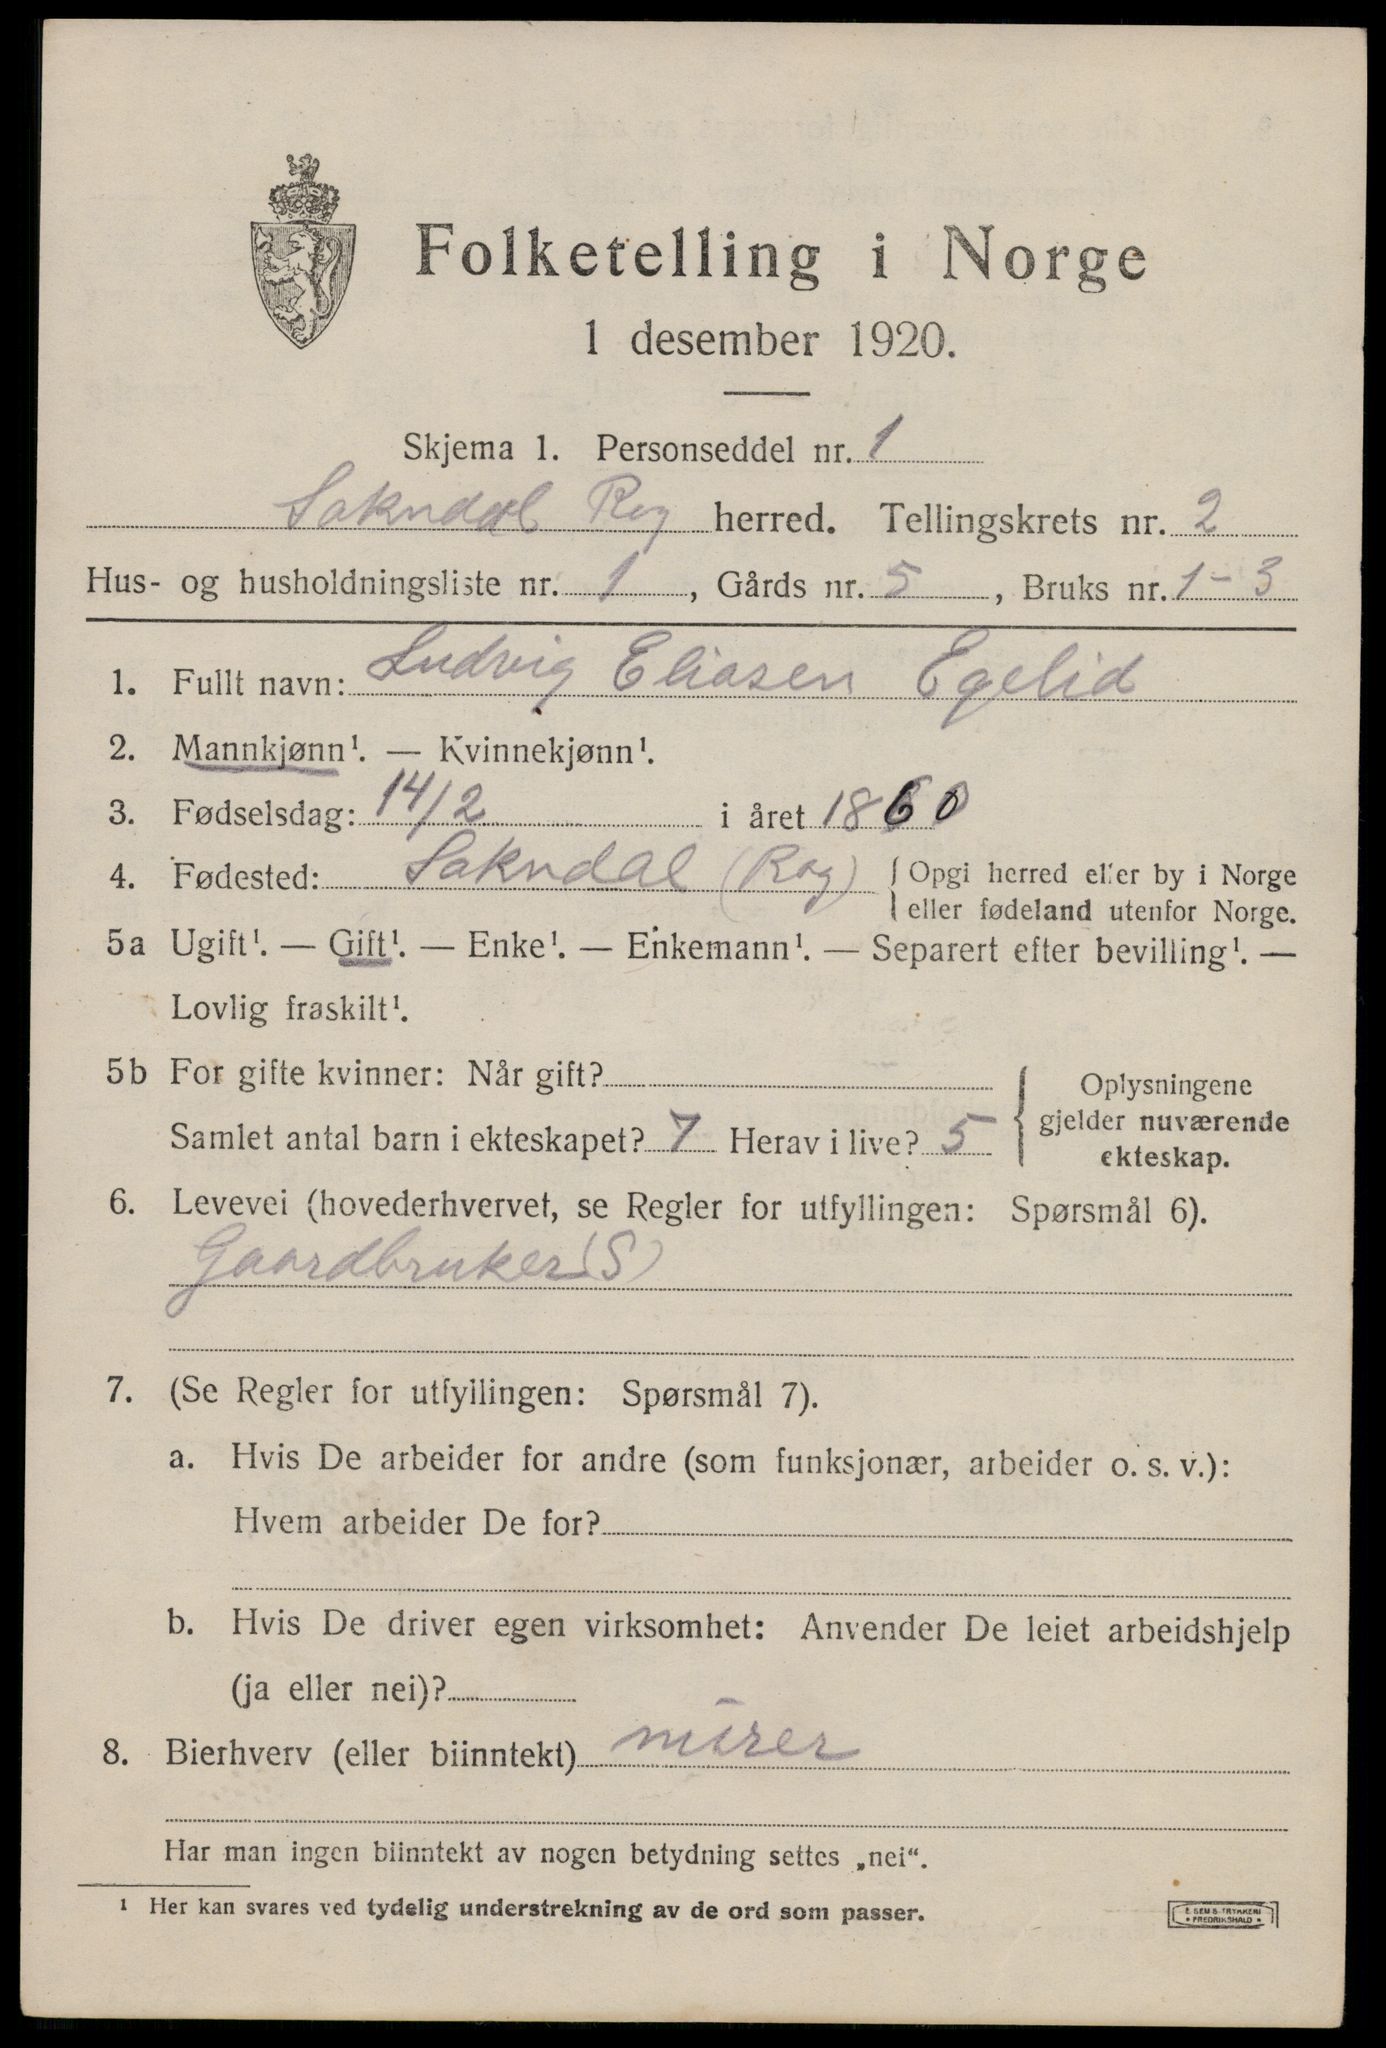 Folketelling i Norge
1 desember 1920.
Skjema 1. Personseddel nr. 1
Sokndal Rog herred. Tellingskrets nr. 2
Hus- og husholdningsliste nr. 1, Gårds nr. 5, Bruks nr. 1-3
1. Fullt navn: Ludvig Eliasen Egelid
2. Mannkjønn¹. — Kvinnekjønn¹.
3. Fødselsdag: 14/2 i året 1860
4. Fødested: Sokndal (Rog) { Opgi herred eller by i Norge
eller fødeland utenfor Norge.
5a Ugift¹. — Gift¹. — Enke¹. — Enkemann¹. — Separert efter bevilling¹. —
Lovlig fraskilt¹.
5b For gifte kvinner: Når gift?
Samlet antal barn i ekteskapet? 7 Herav i live? 5
Oplysningene
gjelder nuværende
ekteskap.
6. Levevei (hovederhvervet, se Regler for utfyllingen: Spørsmål 6).
Gaardbruker (S)
7. (Se Regler for utfyllingen: Spørsmål 7).
a. Hvis De arbeider for andre (som funksjonær, arbeider o. s. v.):
Hvem arbeider De for?
b. Hvis De driver egen virksomhet: Anvender De leiet arbeidshjelp
(ja eller nei)?
8. Bierhverv (eller biinntekt) mūrer
Har man ingen biinntekt av nogen betydning settes „nei“.
¹ Her kan svares ved tydelig understrekning av de ord som passer.
E. SEMS TRYKKERI
• FREDRIKSHALD •